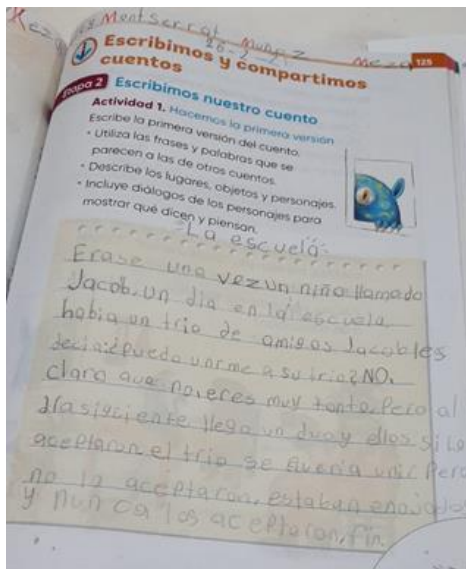 Montserrat Muñoz Meza
125
Escribimos y compartimos
cuentos
Etapa 2 Escribimos nuestro cuento
Actividad 1. Hacemos la primera versión
Escribe la primera versión del cuento.
• Utiliza las frases y palabras que se
parecen a las de otros cuentos.
• Describe los lugares, objetos y personajes.
• Incluye diálogos de los personajes para
mostrar qué dicen y piensan.
La escuela:
Erase una vez un niño llamado
Jacob, un dia en la escuela
habia un trio de amigos Jacob les
decia:¿puedo unirme a su trio? NO,
claro que no, eres muy tonto. Pero al
dia siguiente llego un duo y ellos si lo
aceptaron, el trio se queria unir Pero
no lo aceptaron, estaban enojados
y nunca los aceptaron, fin.